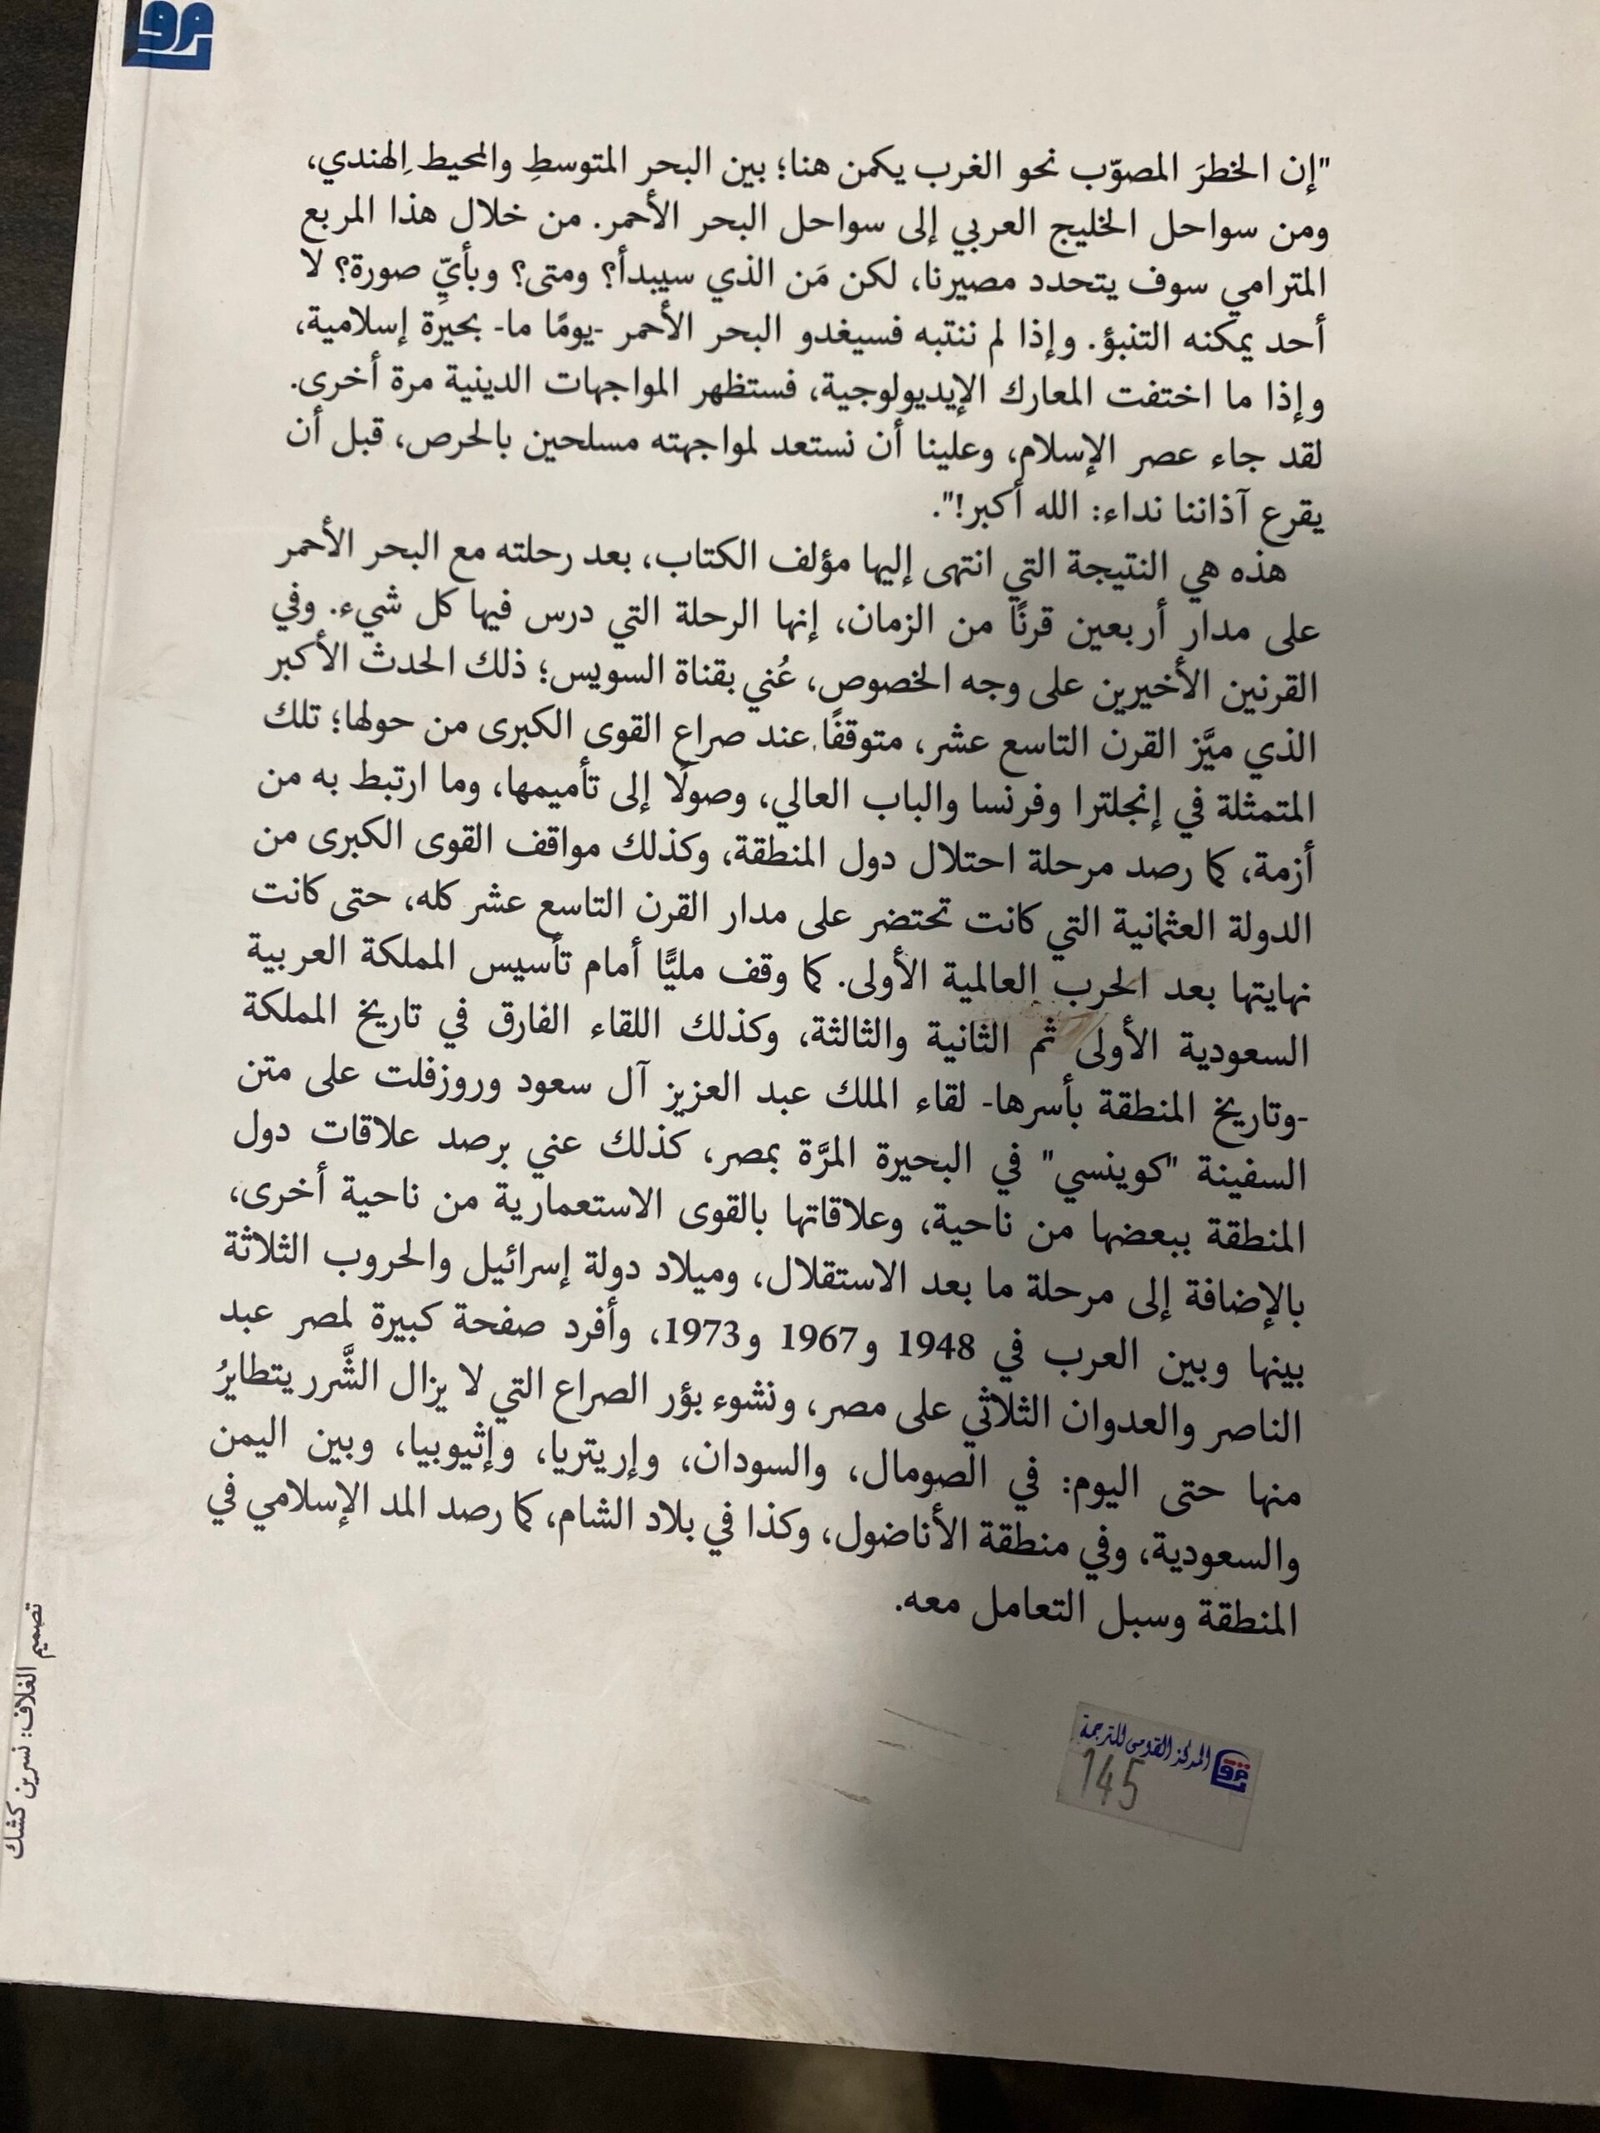 "إن الخطرَ المصوّب نحو الغرب يكمن هنا؛ بين البحر المتوسطِ والمحيطِ الهندي،
ومن سواحل الخليج العربي إلى سواحل البحر الأحمر. من خلال هذا المربع
المترامي سوف يتحدد مصيرنا، لكن مَن الذي سيبدأ؟ ومتى؟ وبأيِّ صورة؟ لا
أحد يمكنه التنبؤ. وإذا لم ننتبه فسيغدو البحر الأحمر -يومًا ما- بحيرة إسلامية،
وإذا ما اختفت المعارك الإيديولوجية، فستظهر المواجهات الدينية مرة أخرى.
لقد جاء عصر الإسلام، وعلينا أن نستعد لمواجهته مسلحين بالحرص، قبل أن
يقرع آذاننا نداء: الله أكبر!".
هذه هي النتيجة التي انتهى إليها مؤلف الكتاب، بعد رحلته مع البحر الأحمر
على مدار أربعين قرنًا من الزمان، إنها الرحلة التي درس فيها كل شيء. وفي
القرنين الأخيرين على وجه الخصوص، عُني بقناة السويس؛ ذلك الحدث الأكبر
الذي ميَّز القرن التاسع عشر، متوقفًا عند صراع القوى الكبرى من حولها؛ تلك
المتمثلة في إنجلترا وفرنسا والباب العالي، وصولًا إلى تأميمها، وما ارتبط به من
أزمة، كما رصد مرحلة احتلال دول المنطقة، وكذلك مواقف القوى الكبرى من
الدولة العثمانية التي كانت تحتضر على مدار القرن التاسع عشر كله، حتى كانت
نهايتها بعد الحرب العالمية الأولى. كما وقف مليًّا أمام تأسيس المملكة العربية
السعودية الأولى ثم الثانية والثالثة، وكذلك اللقاء الفارق في تاريخ المملكة
-وتاريخ المنطقة بأسرها- لقاء الملك عبد العزيز آل سعود وروزفلت على متن
السفينة "كوينسي" في البحيرة المرَّة بمصر، كذلك عني برصد علاقات دول
المنطقة ببعضها من ناحية، وعلاقاتها بالقوى الاستعمارية من ناحية أخرى،
بالإضافة إلى مرحلة ما بعد الاستقلال، وميلاد دولة إسرائيل والحروب الثلاثة
بينها وبين العرب في 1948 و1967 و1973، وأفرد صفحة كبيرة لمصر عبد
الناصر والعدوان الثلاثي على مصر، ونشوء بؤر الصراع التي لا يزال الشَّرر يتطايرُ
منها حتى اليوم: في الصومال، والسودان، وإريتريا، وإثيوبيا، وبين اليمن
والسعودية، وفي منطقة الأناضول، وكذا في بلاد الشام، كما رصد المد الإسلامي في
المنطقة وسبل التعامل معه.
المركز القومى للترجمة
145
تصميم الغلاف: نسرين كشك